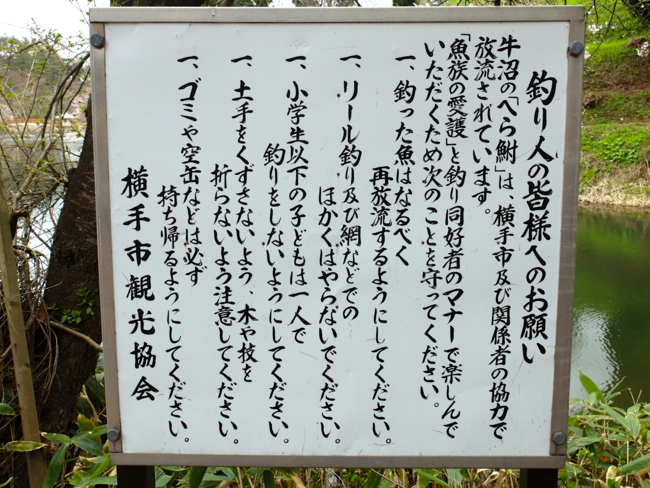 釣り人の皆様へのお願い
牛沼の「へら鮒」は、横手市及び関係者の協力で
放流されています。
「魚族の愛護」と釣り同好者のマナーで楽しんで
いただくため次のことを守ってください。
一、釣った魚はなるべく
再放流するようにしてください。
一、リール釣り及び網などでの
ほかくはやらないでください。
一、小学生以下の子どもは一人で
釣りをしないようにしてください。
一、土手をくずさないよう、木や枝を
折らないよう注意してください。
一、ゴミや空缶などは必ず
持ち帰るようにしてください。
横手市観光協会